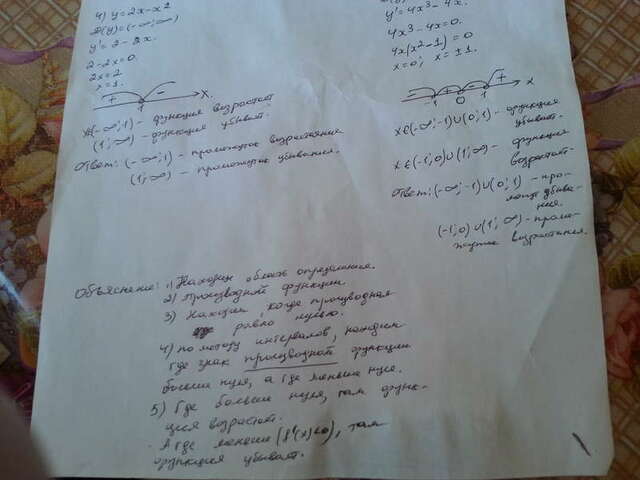 4) y=2x-x²
D(y)=(-∞;∞)
y'=2-2x.
2-2x=0.
2x=2
x=1.
+ - x
1
x∈(-∞;1) - функция возрастает
(1;∞) - функция убывает.
Ответ: (-∞;1) - промежуток возрастания
(1;∞) - промежуток убывания.
y'=4x³-4x.
4x³-4x=0.
4x(x²-1)=0
x=0; x=±1.
- + - + x
-1 0 1
x∈(-∞;-1)∪(0;1) - функция
убывает.
x∈(-1;0)∪(1;∞) - функция
возрастает.
Ответ: (-∞;-1)∪(0;1) - про-
межут убыва-
ния.
(-1;0)∪(1;∞) - проме-
жуток возрастания.
Объяснение: 1) Находим область определения.
2) Производной функции.
3) Находим, когда производная
равно нулю.
4) по методу интервалов, находим
где знак производной функции
больше нуля, а где меньше нуля.
5) Где больше нуля, там функ-
ция возрастает.
А где меньше (f'(x)<0), там
функция убывает.